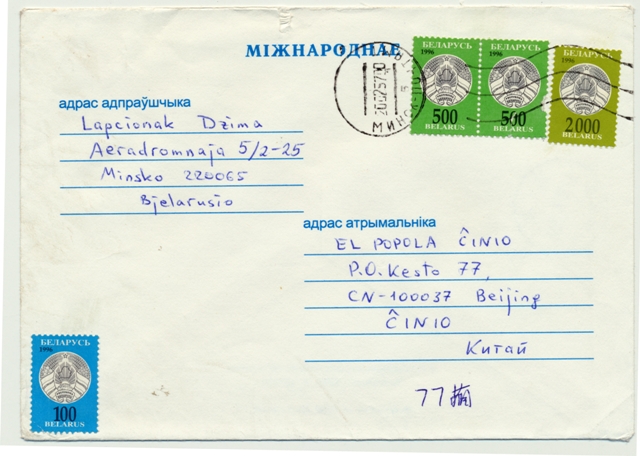 МІЖНАРОДНАЕ
БЕЛАРУСЬ
1996
500
BELARUS
БЕЛАРУСЬ
1996
500
BELARUS
1996
2000
BELARUS
МИНСК
адрас адпраўшчыка
Lapcionak Dzima
Aeradromnaja 5/2-25
Minsko 220065
Bjelarusio
адрас атрымальніка
EL POPOLA ĈINIO
P.O. Kesto 77,
CN-100037 Beijing
ĈINIO
Китай
77
БЕЛАРУСЬ
1996
100
BELARUS